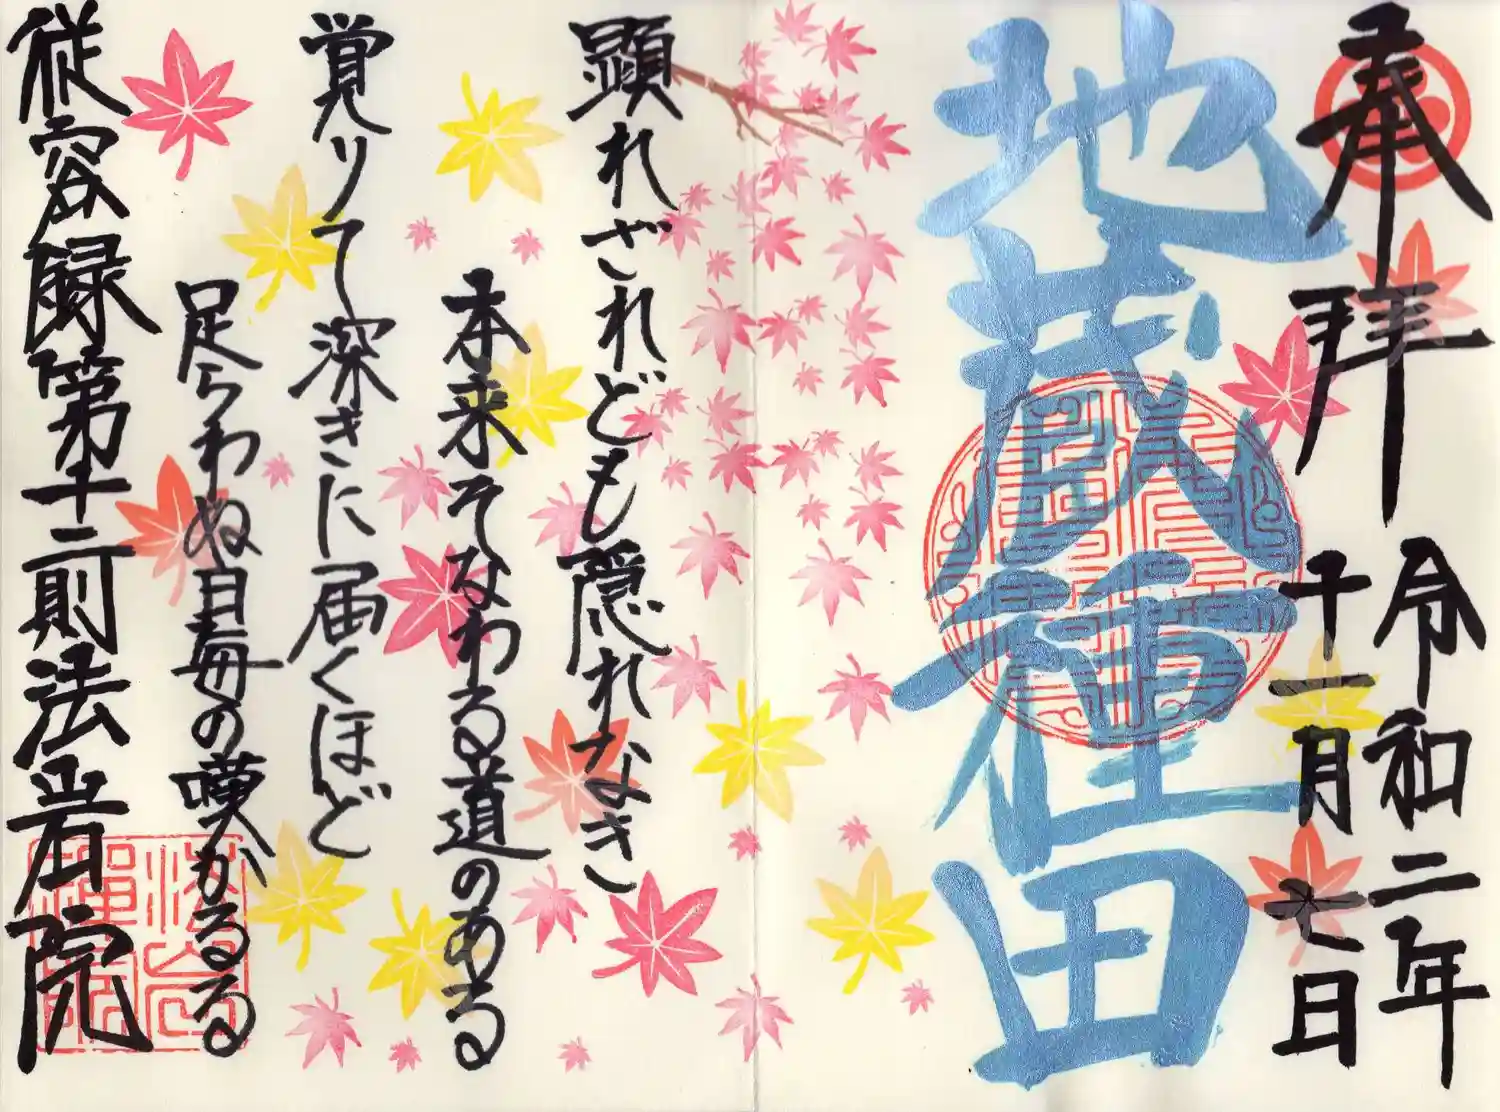 奉拝
令和二年
十一月七日
地蔵種田
顕れざれども隠れなき
本来そなわる道のある
覚りて深きに届くほど
足らわぬ自毎の嘆かるる
従容録第十二則法岩院